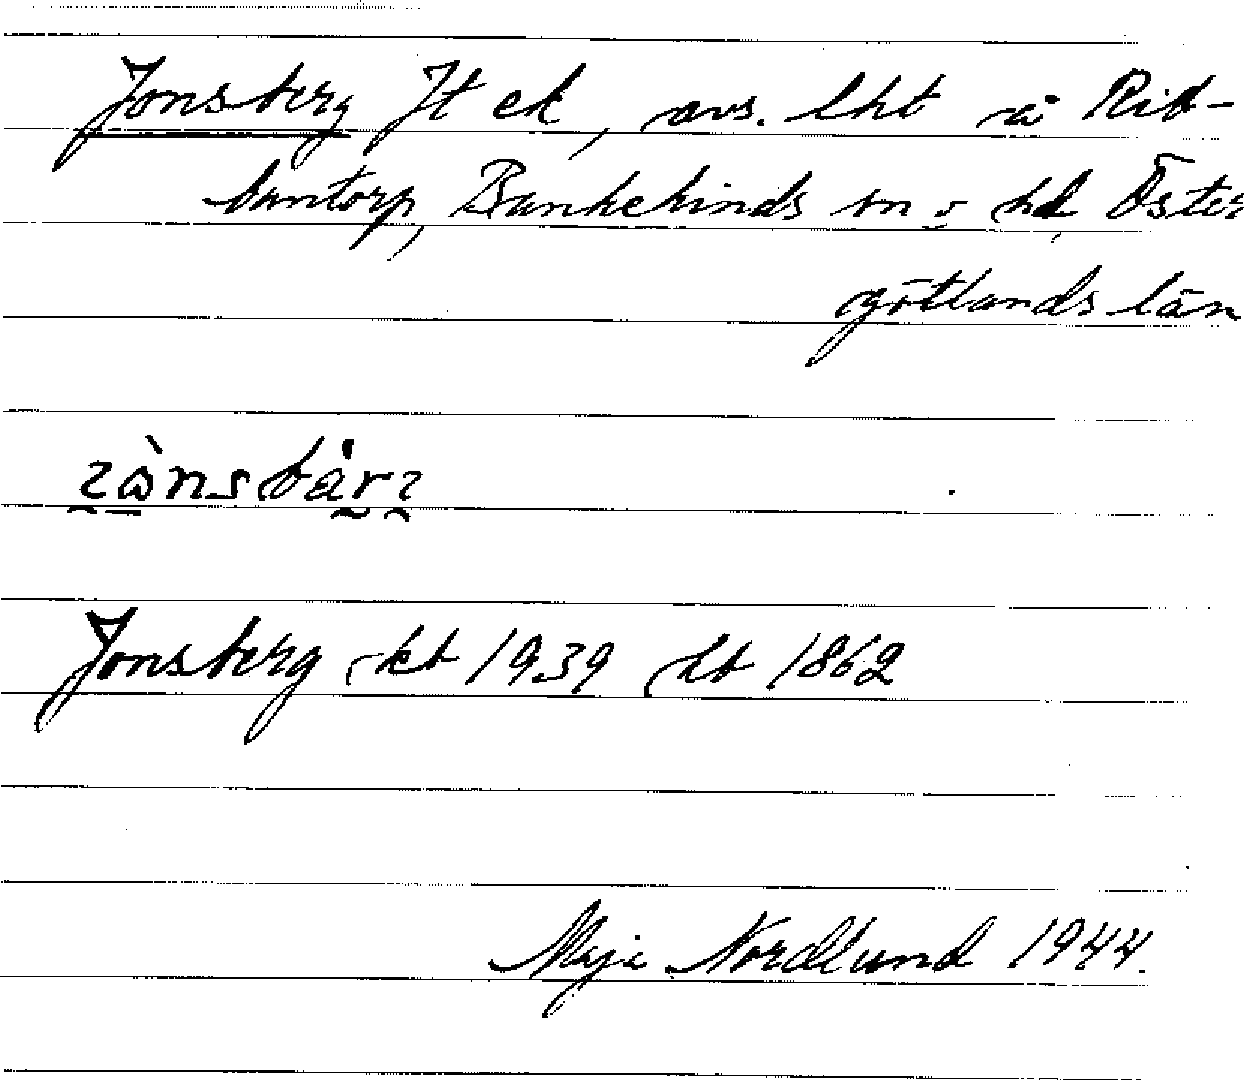 Jonsberg Jt ek, avs. lht å Rid-
bantorp, Bankekinds sn o hd Öster
götlands län
Jonsberg ekt 1939 ht 1862
Maja Nordlund 1944.